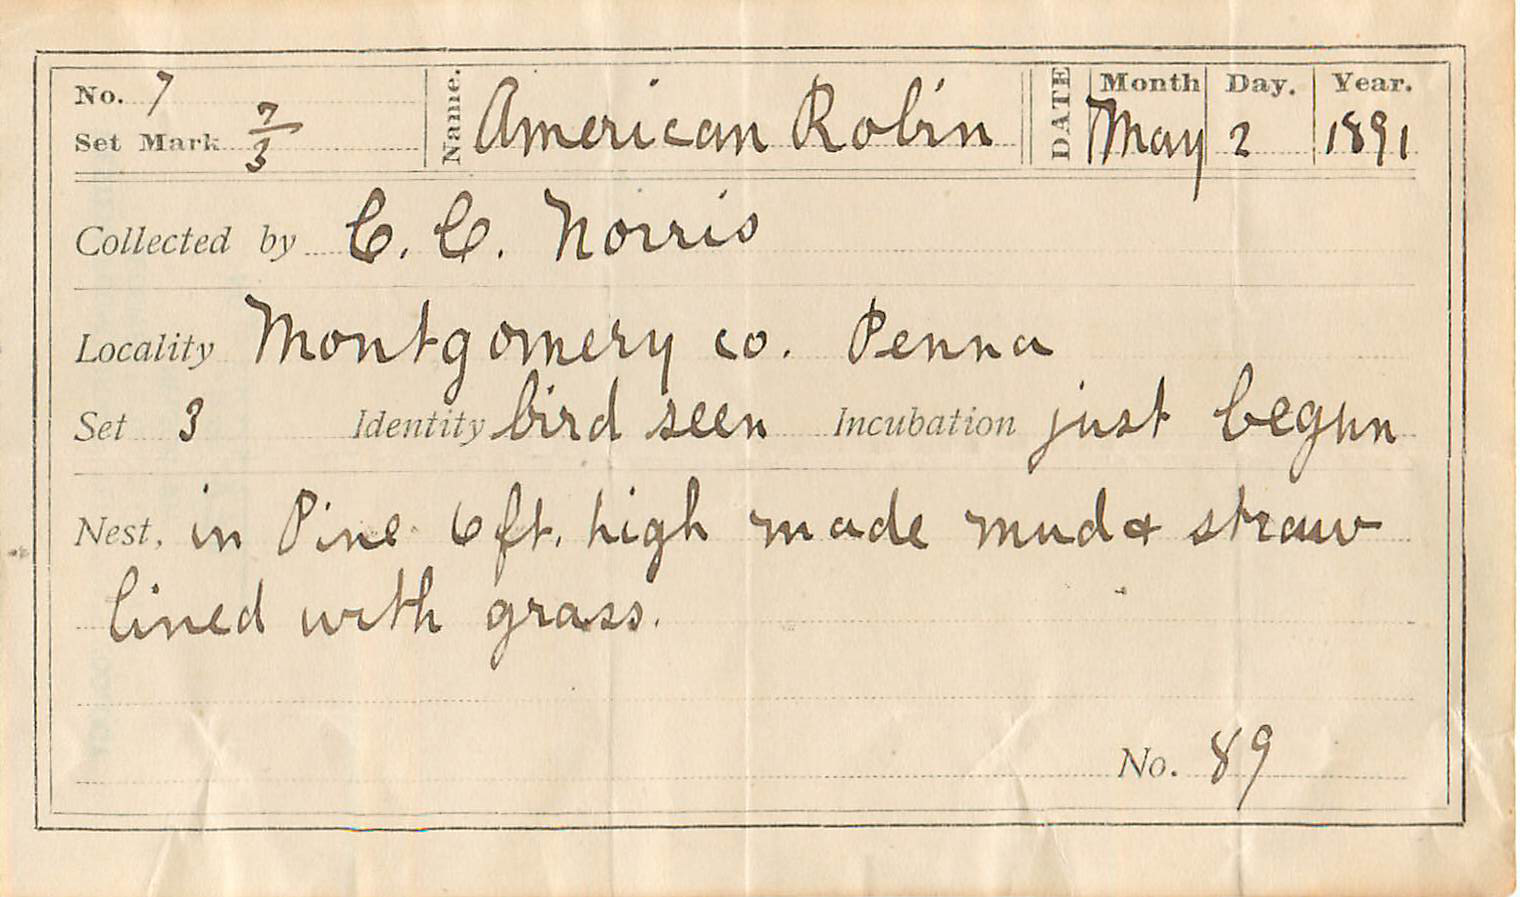 No. 7 Name. American Robin DATE Month May Day. 2 Year. 1891
Set Mark 7/3
Collected by C. C. Norris
Locality Montgomery co. Penna
Set 3 Identity bird seen Incubation just begun
Nest, in Pine 6 ft. high made mud & straw
lined with grass.
No. 89